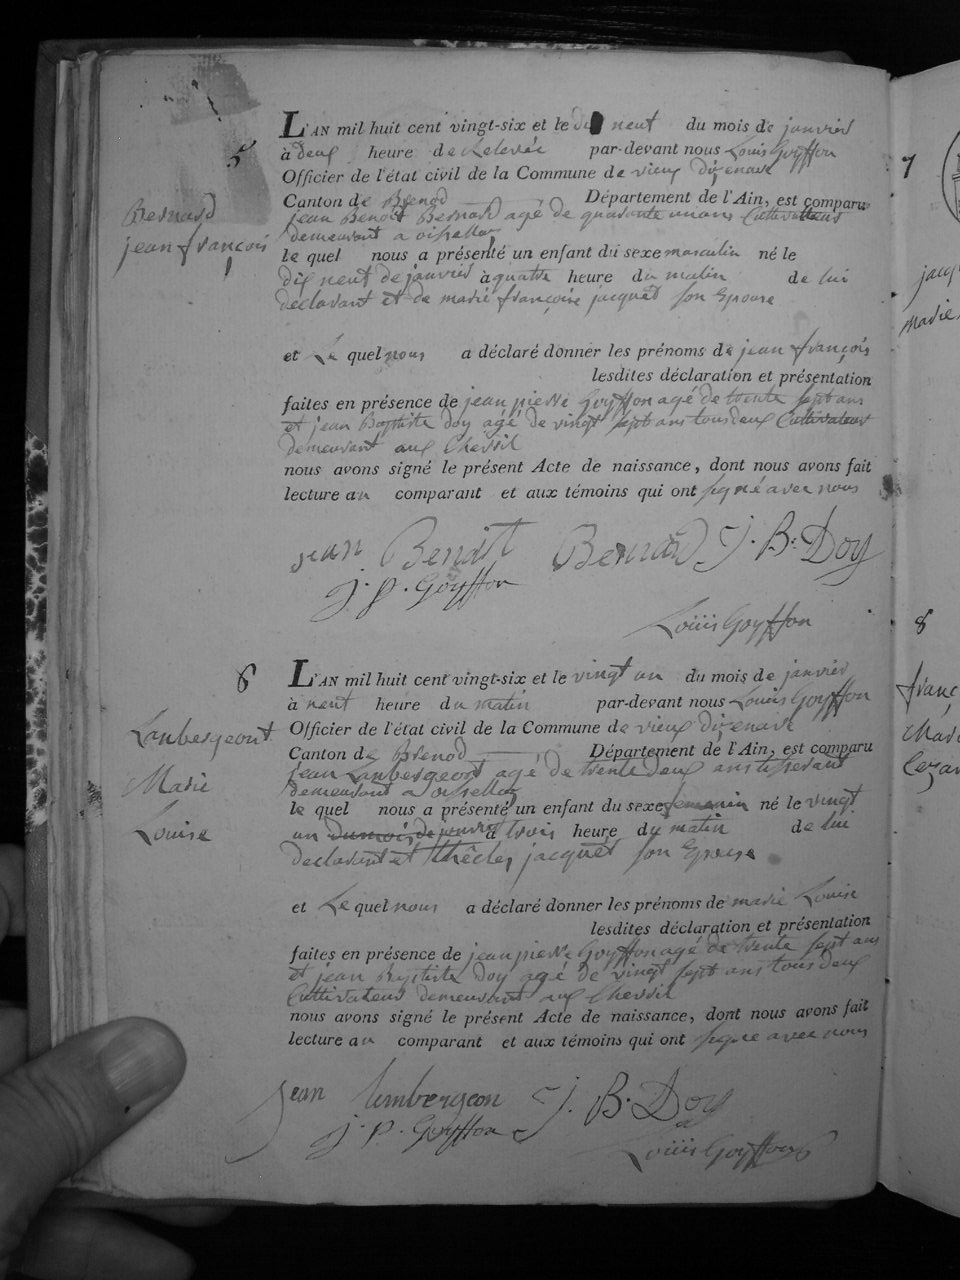 5
Bernard
jean françois
L'AN mil huit cent vingt-six et le dix neuf du mois de janvier
à deux heure de Relevée par-devant nous Louis Goyffon
Officier de l'état civil de la Commune de vieux dizenave
Canton de Brenod Département de l'Ain, est comparu
jean Benoit Bernard agé de quarante un ans Cultivateur
demeurant a oissellaz
le quel nous a présenté un enfant du sexe masculin né le
dix neuf de janvier à quattre heure du matin de lui
declarant et de marie françoise jacquet son Epouse
et Le quel nous a déclaré donner les prénoms de jean françois
lesdites déclaration et présentation
faites en présence de jean pierre Goyffon agé de trente sept ans
et jean Baptiste Doy agé de vingt sept ans tous deux Cultivateurs
demeurant aux
nous avons signé le présent Acte de naissance, dont nous avons fait
lecture au comparant et aux témoins qui ont signé avec nous
jean Benoit Bernard J. B. Doy
J. P. Goyffon
Loüis Goyffon
6
Lanbergeont
Marie
Louise
L'AN mil huit cent vingt-six et le vingt un du mois de janvier
à neuf heure du matin par-devant nous Louis Goyffon
Officier de l'état civil de la Commune de vieux dizenave
Canton de Brenod Département de l'Ain, est comparu
jean Lanbergeont agé de trente deux ans tisserant
demeurant a oissellaz
le quel nous a présenté un enfant du sexe femenin né le vingt
un du mois de janvier à trois heure du matin de lui
declarant et thècles jacquet son Epouse
et Le quel nous a déclaré donner les prénoms de marie Louise
lesdites déclaration et présentation
faites en présence de jean pierre Goyffon agé de trente sept ans
et jean Baptiste Doy agé de vingt sept ans tous deux
Cultivateurs demeurant aux
nous avons signé le présent Acte de naissance, dont nous avons fait
lecture au comparant et aux témoins qui ont signé avec nous
jean lambergeon J. B. Doy
J. P. Goyffon
Loüis Goyffon
7
8